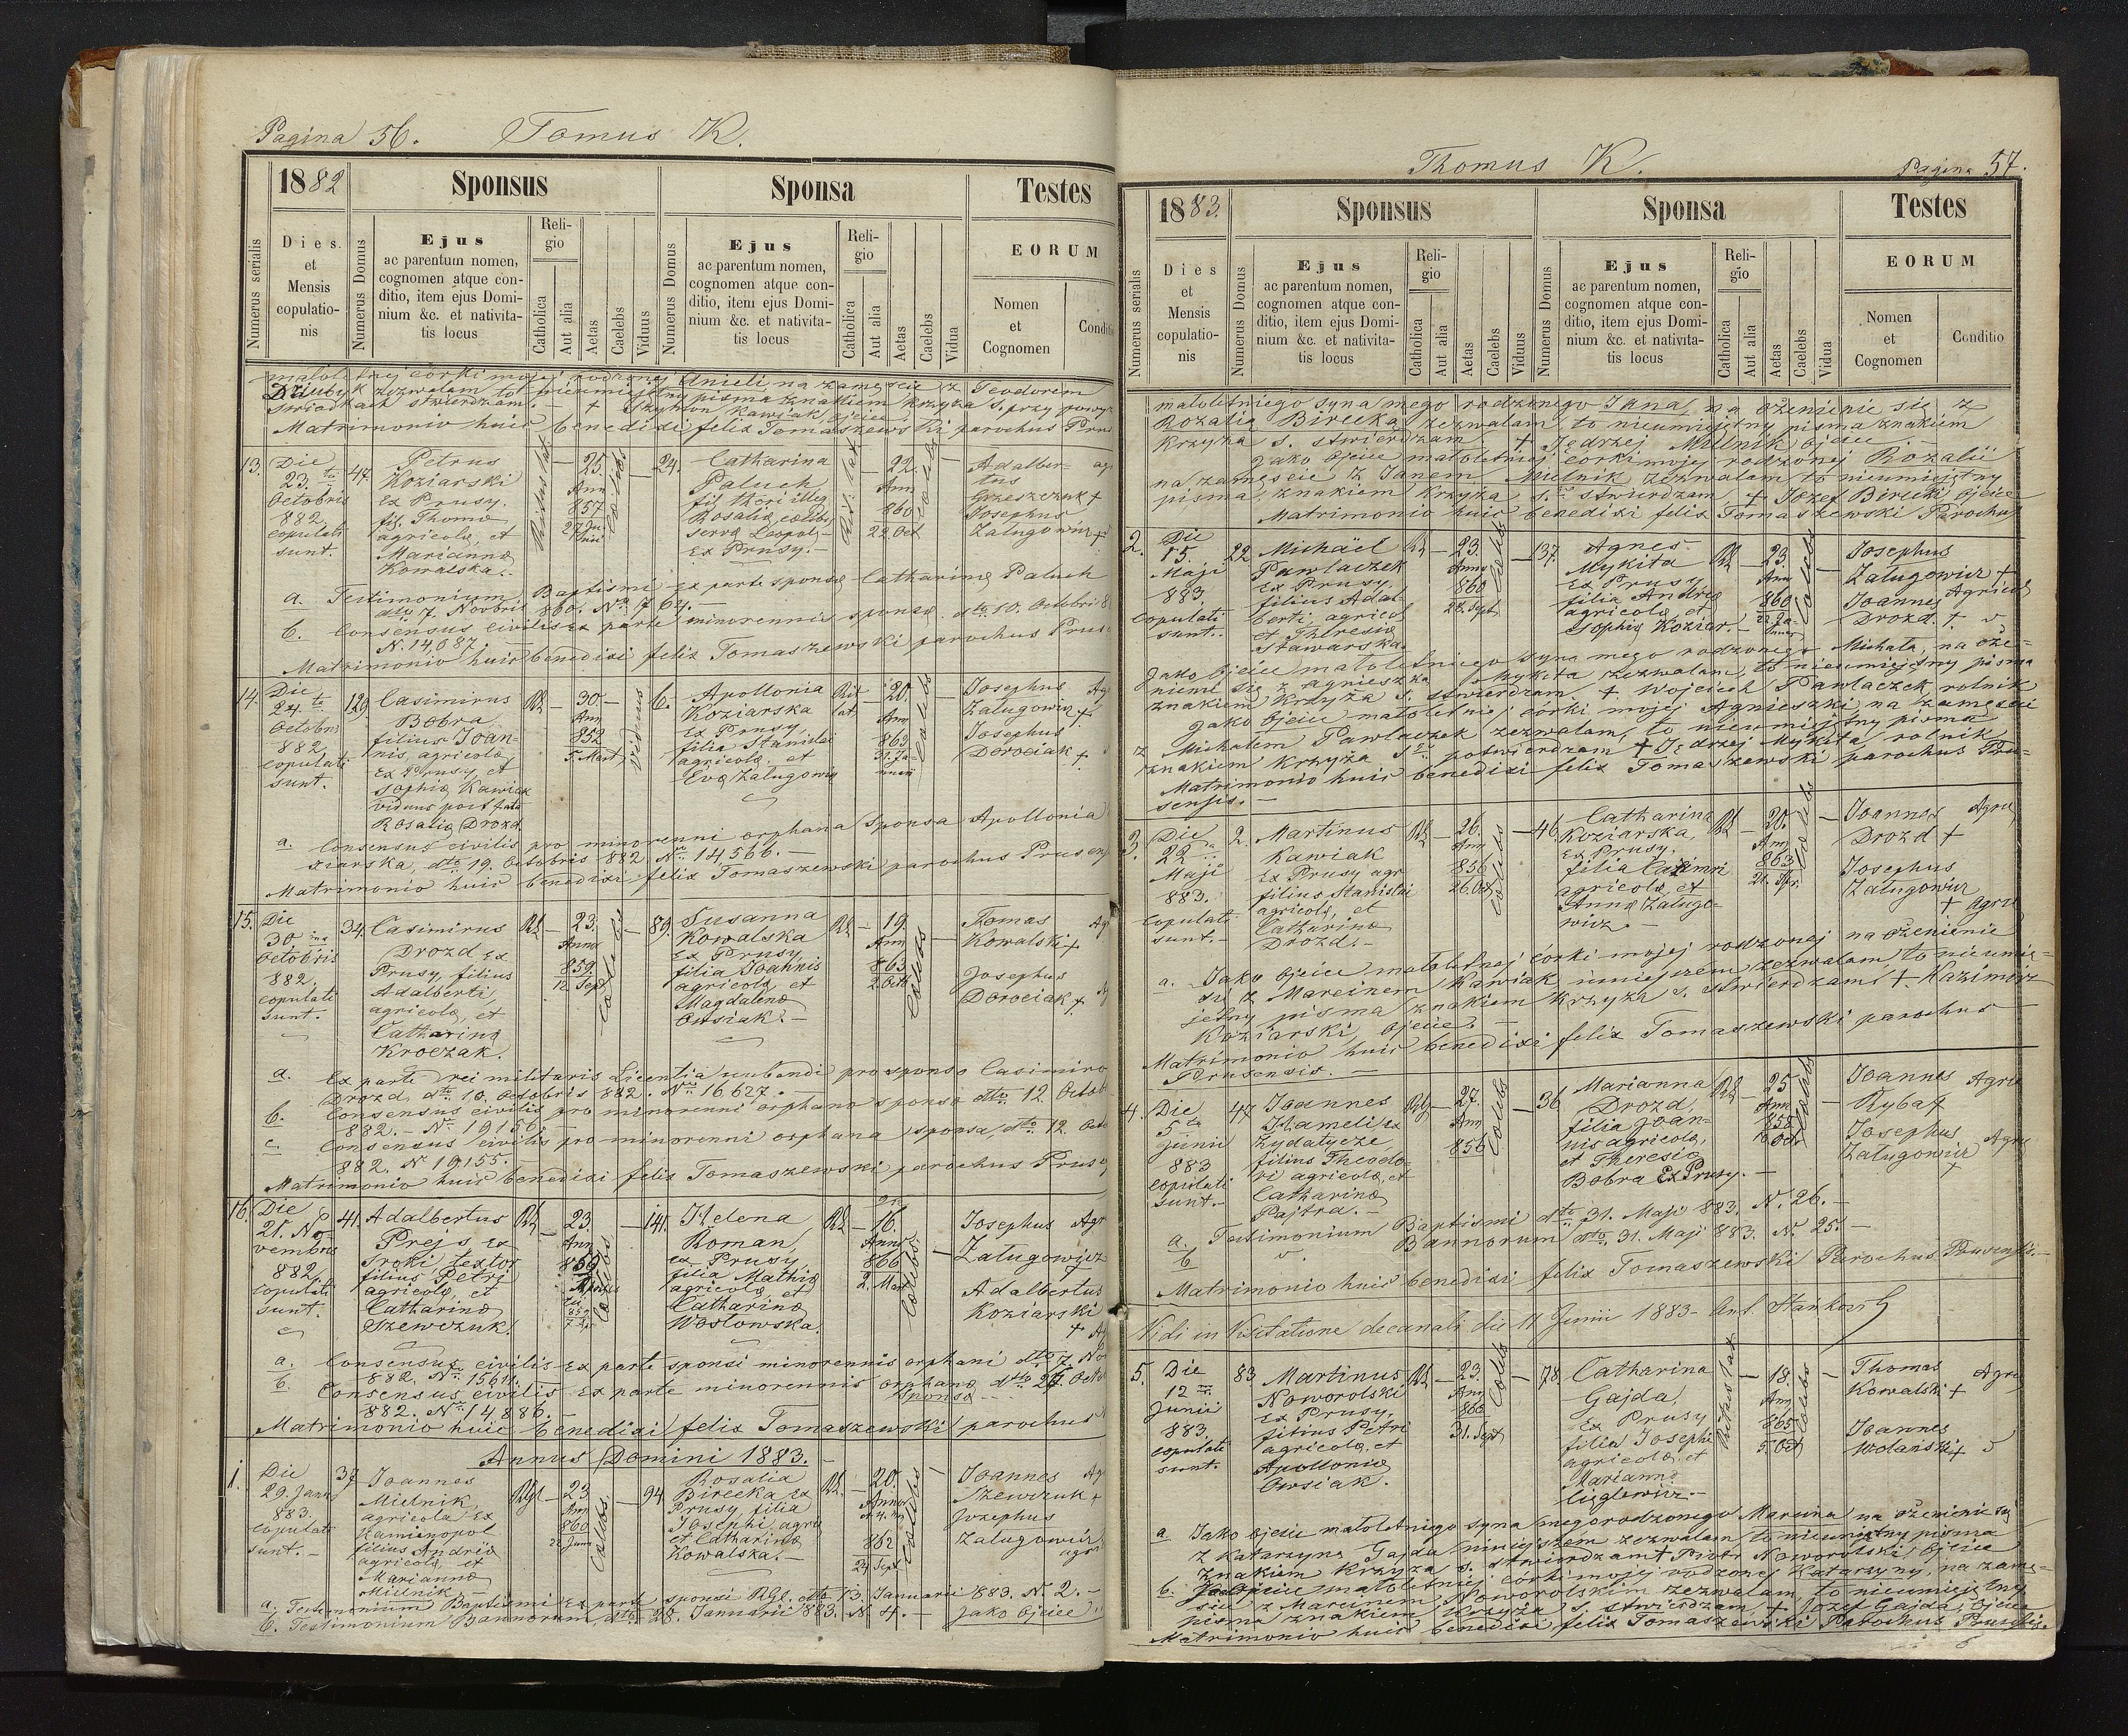 Pagina 56. Tomus K.
1882 Sponsus Sponsa Testes
Numerus serialis
Dies et Mensis copulationis
Numerus Domus
Ejus ac parentum nomen, cognomen atque conditio, item ejus Dominium &c. et nativitatis locus
Religio
Catholica
Aut alia
Aetas
Caelebs
Viduus
Numerus Domus
Ejus ac parentum nomen, cognomen atque conditio, item ejus Dominium &c. et nativitatis locus
Religio
Catholica
Aut alia
Aetas
Caelebs
Vidua
EORUM
Nomen et Cognomen
Conditi
małoletniej córki mojej rodzonej Anieli na zamęście z Teodorem
Dziubyk zezwalam to nieumiejętny pisma znakiem krzyża s. przy powyż
świadkach stwierdzam. + Szymon Kawiak, ojciec
Matrimonio huic benedixi felix Tomaszewski parochus Prus
13. Die 23. te Octobris 882, copulati sunt.
47.
Petrus
Koziarski
Ex Prusy.
fil. Thomæ
agricolæ, et
Mariannæ
Kowalska.
Ritus lat.
25. Ann 857 27 Junii
Cælebs
24.
Catharina
Paluch
fil. theri illeg
Rosaliæ, cælibis
serva Leopol.
Ex Prusy.
Rit: lat
22. Ann 860 22 Oct
Cælebs
Adalbertus
Grzeszczuk +
Josephus
Załugowicz +
a. Testimonium Baptismi ex parte sponsæ Catharinæ Paluch
dto 7. Novbris 860. No 764.
b. Consensus civilis ex parte minorennis sponsæ dto 10. Octobri 8
N. 14,087
Matrimonio huic benedixi felix Tomaszewski parochus Prus
14. Die 24. te Octobri 882 copulati sunt.
129.
Casimirus
Bobra
filius Joan-
nis, agricolæ
Ex Prusy, et
Sophiæ Kawiak
viduus post fata
Rosaliæ Drozd.
Rl
30. Ann 852 5. Mart
viduus
6.
Apollonia
Koziarska
Ex Prusy
filia Stanislai
agricolæ et
Evæ Załugowicz
Rit lat.
20. Ann 863 31. Januarii
Cælebs
Josephus
Załugowicz +
Josephus
Dorociak +
a. Consensus civilis pro minorenni orphana sponsa Apollonia
ziarska, dto 19. Octobris 882 Nro 14566.
Matrimonio huic benedixi felix Tomaszewski parochus Prusens
15. Die 30 ma Octobris 882 copulati sunt.
34.
Casimirus
Drozd Ex
Prusy, filius
Adalberti,
agricolæ, et
Catharinæ
Kroczak.
Rl
23. Anno 859. 12 Sept
Cælebs
89.
Susanna
Kowalska
Ex Prusy
filia Joannis
agricolæ et
Magdalenæ
Owsiak.
Rl
19. Ann 863. 2. Octb
Cælebs
Tomas
Kowalski +
Josephus
Dorociak +
a. Ex parte rei militaris Licentia nubendi pro sponso Casimiro
Drozd, dto 10. Octobris 882. Nro 16627.
b. Consensus civilis pro minorenni orphano sponso dto 12. Octob
882. N 19156
c. Consensus civilis pro minorenni orphana sponsa, dto 12. Octo
882. N 19155.
Matrimonio huic benedixi felix Tomaszewski parochus Prus
16. Die 21. Novembris 882. copulati sunt.
41.
Adalbertus
Prejs Ex
Sroki, textor
filius Petri
agricolæ, et
Catharinæ
Szewczuk.
Rl
23. Ann 859
Cælebs
141.
Helena
Roman,
ex Prusy,
filia Mathiæ
agricolæ et
Catharinæ
Wosłowska.
Rl
16. Anno 866 2. Mart
Cælebs.
Josephus Agr
Załugowicz
+
Adalbertus
Koziarski
+ Ag
a. Consensus civilis ex parte sponsi minorennis orphani dto 7. No
882. Nro 15611.
b. Consensus civilis ex parte minorennis orphanæ sponsæ dto 26. Octob
882. Nro 14886.
Matrimonio huic benedixi felix Tomaszewski parochus
Annus Domini 1883.
1. Die 29. Janu 883. copulati sunt.
37
Joannes
Mielnik,
agricola Ex
Kamienopol
filius Andreæ
agricolæ, et
Mariannæ
Mielnik
RGl
23 Ann 860 22 Junii
Cælebs.
94.
Rosalia
Birecka Ex
Prusy, filia
Josephi, agric
et Catharinæ
Kowalska.
Rl.
20. Anno 862 24 Sept
Cælebs
Joannes
Szewczuk +
Josephus
Załugowicz
agri
a. Testimonium Baptismi ex parte sponsi RGl. dto 13. Januarii 883. N. 2.
b. Testimonium Bannorum, dto 28. Januarii 883. N 4. Jako Ojciec
Thomus K. Pagina 57.
1883. Sponsus Sponsa Testes
Numerus serialis
Dies et Mensis copulationis
Numerus Domus
Ejus ac parentum nomen, cognomen atque conditio, item ejus Dominium &c. et nativitatis locus
Religio
Catholica
Aut alia
Aetas
Caelebs
Viduus
Numerus Domus
Ejus ac parentum nomen, cognomen atque conditio, item ejus Dominium &c. et nativitatis locus
Religio
Catholica
Aut alia
Aetas
Caelebs
Vidua
EORUM
Nomen et Cognomen
Conditio
małoletniego syna mego rodzonego Jana na ożenienie się z
Rozalią Birecką zezwalam, to nieumiejętny pisma znakiem
Krzyża s. stwierdzam + Jędrzej Mielnik Ojciec.
Jako Ojciec małoletniej córki mojej rodzonej Rozalii
na zamęście z Janem Mielnik zezwalam to nieumiejętny
pisma, znakiem krzyża s. stwierdzam, + Józef Birecki, Ojciec
Matrimonio huic benedixi felix Tomaszewski Parochus
2. Die 15. Maji 883 copulati sunt.
22
Michaël
Pawlaczek
Ex Prusy,
filius Adal-
berti, agricol
et Theresiæ
Stawarska.
Rl
23. Anno 860 28. Sept
Cælebs
137.
Agnes
Mykita
Ex Prusy
filia Andreæ
agricolæ et
Sophiæ Koziar.
Rl
23. Ann 860 22. Januar
Cælebs
Josephus
Załugowicz +
Joannes Agricol
Drozd. +
Jako Ojciec małoletniego syna mego rodzonego Michała, na oże-
nienie się z Agnieszką Mykita zezwalam, to nieumiejętny pisma
znakiem Krzyża s. stwierdzam. + Wojciech Pawlaczek, rolnik
Jako Ojciec małoletniej córki mojej Agnieszki na zamęście
z Michałem Pawlaczek zezwalam, to nieumiejętny pisma
znakiem Krzyża S. potwierdzam + Jędrzej Mykita rolnik
Matrimonio huic benedixi felix Tomaszewski parochus Pru-
sensis.
3. Die 22 da Maji 883. copulati sunt.
2.
Martinus
Kawiak
Ex Prusy agr
filius Stanislai
agricolæ, et
Catharinæ
Drozd.
Rl
26. Ann 856 26. Oct
Cælebs
46.
Catharina
Koziarska,
Ex Prusy.
filia Casimiri
agricolæ, et
Annæ Załugo-
wicz
Rl
20. Ann 863 21. Apr.
Cælebs
Joannes Agric
Drozd +
Josephus
Załugowicz
+ agric
a. Jako Ojciec małoletniej córki mojej rodzonej na ożenienie
się z Marcinem Kawiak niniejszem zezwalam, to nieumie-
jętny pisma znakiem Krzyża s. stwierdzam, + Kazimierz
Koziarski, Ojciec
Matrimonio huic benedixi felix Tomaszewski parochus
Prusensis.
4. Die 5 ta Junii 883 copulati sunt.
47
Joannes
Hameli ex
Zydatycze
filius Theodo-
ri agricolæ, et
Catharinæ
Pajtra.
RGl
27. Ann 856
Cælebs
36
Marianna
Drozd,
filia Joan-
nis agricolæ,
et Theresiæ
Bobra Ex Prusy.
Rl
25 Ann 858 10 Octb
Cælebs
Joannes Agric
Ryba +
Josephus Agric
Załugowicz
+
a. Testimonium Baptismi dto 31. Maji 883. N. 26.
b Bannorum dto 31. Maji 883. N. 25.
Matrimonio huic benedixi felix Tomaszewski Parochus Prusensis.
Vidi in Visitatione decanali die 11 Junii 1883 Ant. Stańkows
5. Die 12 ma Junii 883. copulati sunt.
83
Martinus
Noworolski
Ex Prusy,
filius Petri
agricolæ, et
Apolloniæ
Owsiak.
Rl
23. Ann 860 31. Sept
Cælebs
78.
Catharina
Gajda,
Ex Prusy
filia Josephi
agricolæ, et
Mariannæ
Cięglewicz.
Ritus lat
18. Ann 865 5. Oct
Cælebs
Thomas Agric
Kowalski +
Joannes
Wolański +
a Jako Ojciec małoletniego syna mego rodzonego Marcina na ożenienie się
z Katarzyną Gajda niniejszem zezwalam, to nieumiejętny pisma
znakiem Krzyża s. stwierdzam + Piotr Noworolski, Ojciec
b. Jako Ojciec małoletniej córki mojej rodzonej Katarzyny, na zamę-
ście z Marcinem Noworolskim zezwalam, to nieumiejętny
pisma znakiem Krzyża s. stwierdzam, + Józef Gajda, Ojciec
Matrimonio huic benedixi felix Tomaszewski Parochus Prusensis.